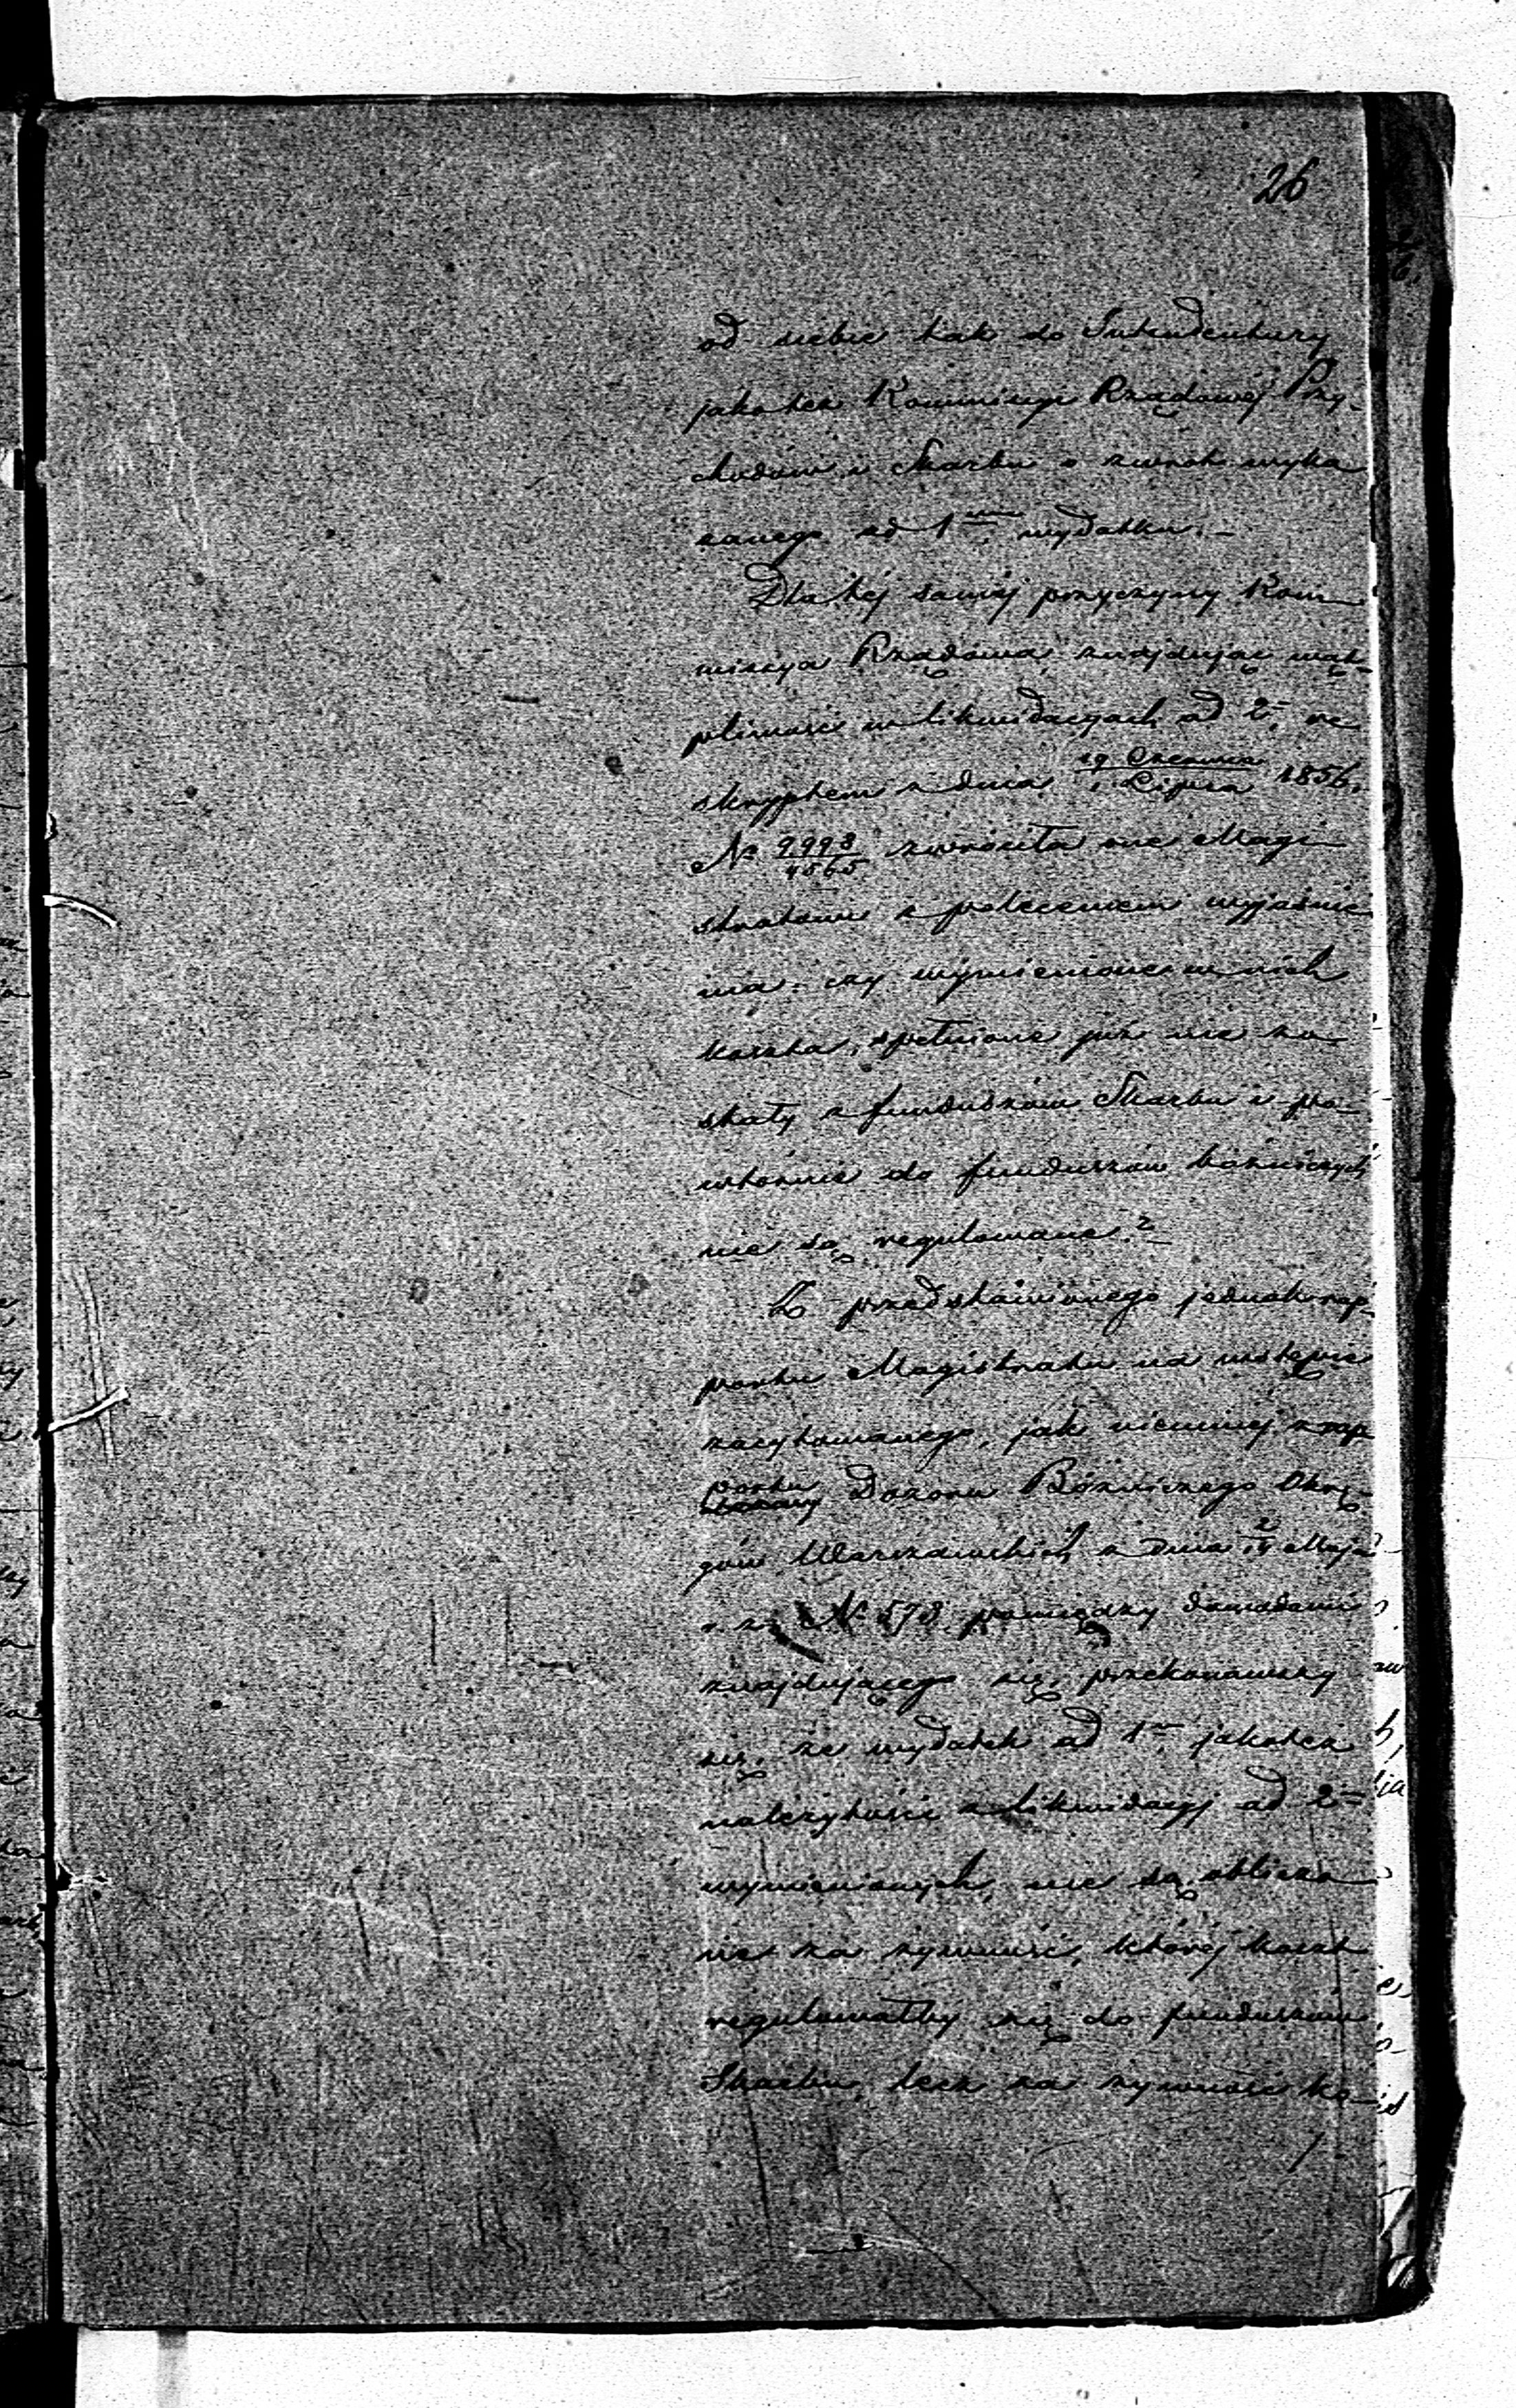 26
od siebie tak do Intendentury
jakoteż Kommissyi Rządowéj Przy-
chodów i Skarbu o zwrot wyka
zanego ad 1m wydatku.—
Dla téj saméj przyczyny Kom
missya Rządowa znajdując wąt-
pliwość w likwidacyach ad 2o, re
skryptem z dnia 19 Czerwca / 1 Lipca 1856.
№ 9998/4565 zwróciła one Magi
stratowi z poleceniem wyjaśnie
nia czy wymienione w nich
koszta, spełnione już nie zo
stały z funduszów Skarbu i po-
wtórnie do funduszów bóżniczych
nie są regulowane?
Z przedstawionego jednak rap
portu Magistratu na wstępie
zacytowanego, jak niemniéj z rap
portu Dozoru Bóżniczego Okrę-
gów Warszawskich z dnia 2/14 Maja
r. z. № 578. pomiędzy dowodami
znajdującego się, przekonawszy
się, że wydatek ad 1m, jakoteż
należytości z likwidacyj ad 2o
wymienionych, nie są obliczo
ne za żywność, któréj koszt
regulowałby się do funduszów
Skarbu, lecz za żywność ko-